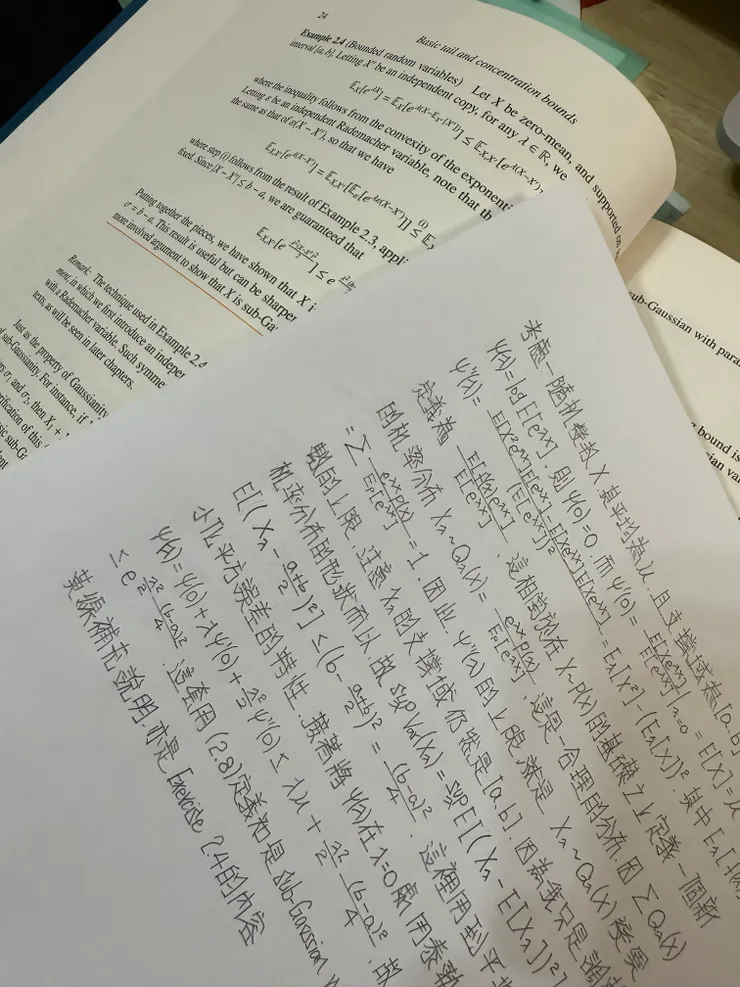 24
Basic tail and concentration bounds
Example 2.4 (Bounded random variables) Let X be zero-mean, and supported on
interval [a, b]. Letting X′ be an independent copy, for any λ ∈ ℝ, we
𝔼_X[e^{λX}] = 𝔼_X[e^{λ(X−𝔼_{X′}[X′])}] ≤ 𝔼_{X,X′}[e^{λ(X−X′)}],
where the inequality follows from the convexity of the exponenti
Letting ε be an independent Rademacher variable, note that th
the same as that of ε(X − X′), so that we have
𝔼_{X,X′}[e^{λ(X−X′)}] = 𝔼_{X,X′}[𝔼_ε[e^{λε(X−X′)}]] ≤ (i) 𝔼
where step (i) follows from the result of Example 2.3, appl
fixed. Since |X − X′| ≤ b − a, we are guaranteed that
𝔼_{X,X′}[e^{λ²(X−X′)²/2}] ≤ e
Putting together the pieces, we have shown that X i
σ = b − a. This result is useful but can be sharper
more involved argument to show that X is sub-Ga
Remark: The technique used in Example 2.4
ment, in which we first introduce an indeper
with a Rademacher variable. Such symme
texts, as will be seen in later chapters.
Just as the property of Gaussianity
of sub-Gaussianity. For instance, if
σ₁ and σ₂, then X₁ +
erification of this
sic sub-G
sub-Gaussian with para
bound is
ian va
考慮一隨機變數 X 其平均為 μ, 且支撐域為 [a,b]
ψ(λ) = log E[e^{λX}], 則 ψ(0) = 0, 而 ψ'(0) = E[Xe^{λX}]/E[e^{λX}] |_{λ=0} = E[X] = μ
ψ''(λ) = (E[X²e^{λX}]E[e^{λX}] − E[Xe^{λX}]E[Xe^{λX}])/(E[e^{λX}])² = E_λ[X²] − (E_λ[X])², 其中 E_λ[f(X)]
定義為 E[f(X)e^{λX}]/E[e^{λX}], 這相當於在 X~p(x) 的基礎之上定義一個新
的機率分布 X_λ~Q_λ(x) = e^{λx}p(x)/E_P[e^{λX}], 這是一合理的分布, 因 ΣQ_λ(x)
= Σ e^{λx}p(x)/E_P[e^{λX}] = 1. 因此, ψ''(λ) 的上限, 就是 X_λ~Q_λ(x) 變異
數的上限. 注意 X_λ 的支撐域仍然是 [a,b], 因為我只是調
機率分布的形狀而以, 故 sup Var(X_λ) = sup E[(X_λ − E[X_λ])²]
E[(X_λ − (a+b)/2)²] ≤ (b − (a+b)/2)² = (b−a)²/4, 這裡用到平
小化平方誤差的特性. 接著將 ψ(λ) 在 λ=0 處用泰勒
ψ(λ) = ψ(0) + λψ'(0) + λ²/2 ψ''(0) ≤ λμ + λ²/2 (b−a)²/4. 故
≤ e^{λ²/2 (b−a)²/4}. 這套用 (2.8) 定義知是 sub-Gaussian
黃線補充說明, 亦是 Exercise 2.4 的內容